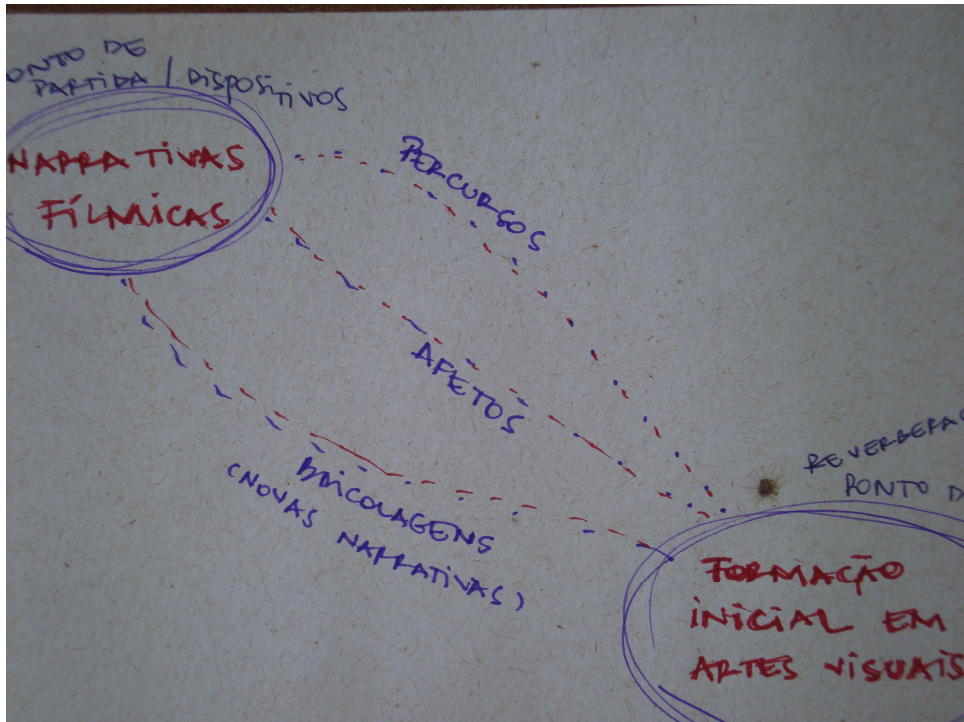 ONTO DE
PARTIDA / DISPOSITIVOS
NARRATIVAS
FÍLMICAS
PERCURSOS
AFETOS
BRICOLAGENS
(NOVAS
NARRATIVAS)
REVERBERAÇ
PONTO D
FORMAÇÃO
INICIAL EM
ARTES VISUAIS